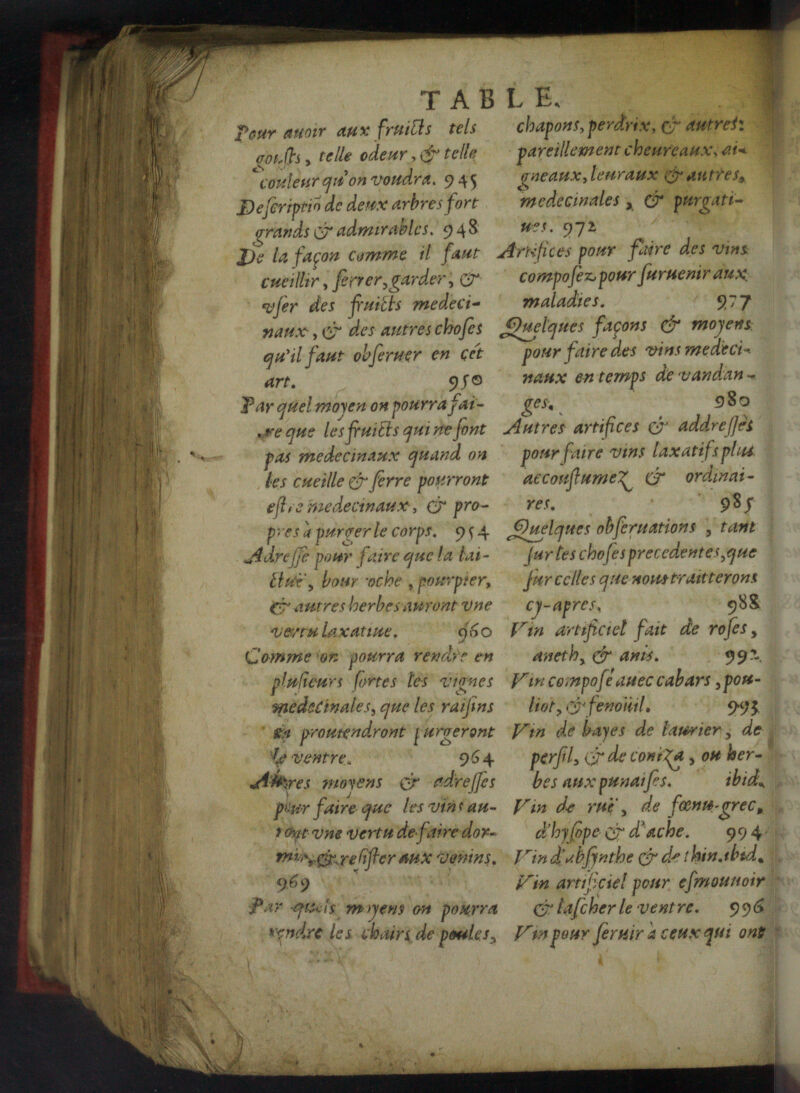 TABLE.
Pour auoir aux fruicts tels
gousts, telle odeur, & telle
couleur qu'on voudra. 945
Descriptiō de deux arbres fort
grands & admirables. 948
De la façon comme il faut
cueillir, serrer, garder, &
vser des fruicts medeci-
naux, & des autres choses
qu'il faut obseruer en cét
art. 950
Par quel moyen on pourra fai-
re que les fruicts qui ne sont
pas medecinaux quand on
les cueille & serre pourront
estre medecinaux, & pro-
pres à purger le corps. 954
Adresse pour faire que la lai-
ctuë, bour oche, pourpier,
& autres herbes auront vne
vertu laxatiue. 960
Comme on pourra rendre en
plusieurs sortes les vignes
medecinales, que les raisins
en prouiendront purgeront
le ventre. 964
Autres moyens & adresses
pour faire que les vins au-
ront vne vertu de faire dor-
mir, & resister aux venins.
969
Par quels moyens on pourra
rendre les chairs de poules,
chapons, perdrix, & autres:
pareillement cheureaux, ai-
gneaux, leuraux & autres,
medecinales, & purgati-
ues. 972
Artifices pour faire des vins
composez pour suruenir aux
maladies. 977
Quelques façons & moyens
pour faire des vins medeci-
naux en temps de vandan-
ges. 980
Autres artifices & addresses
pour faire vins laxatifs plus
accoustumez & ordinai-
res. 985
Quelques obseruations, tant
sur les choses precedentes, que
sur celles que nous traitterons
cy-apres, 988
Vin artificiel fait de roses,
aneth, & anis. 992
Vin composé auec cabars, pou-
liot, & fenoüil. 993
Vin de bayes de laurier, de
persil, & de coniza, ou her-
bes aux punaises. ibid.
Vin de ruë, de fœnu-grec,
d'hysope & d'ache. 994
Vin d'absynthe & de thin. ibid.
Vin artificiel pour esmouuoir
& lascher le ventre. 996
Vin pour seruir à ceux qui ont